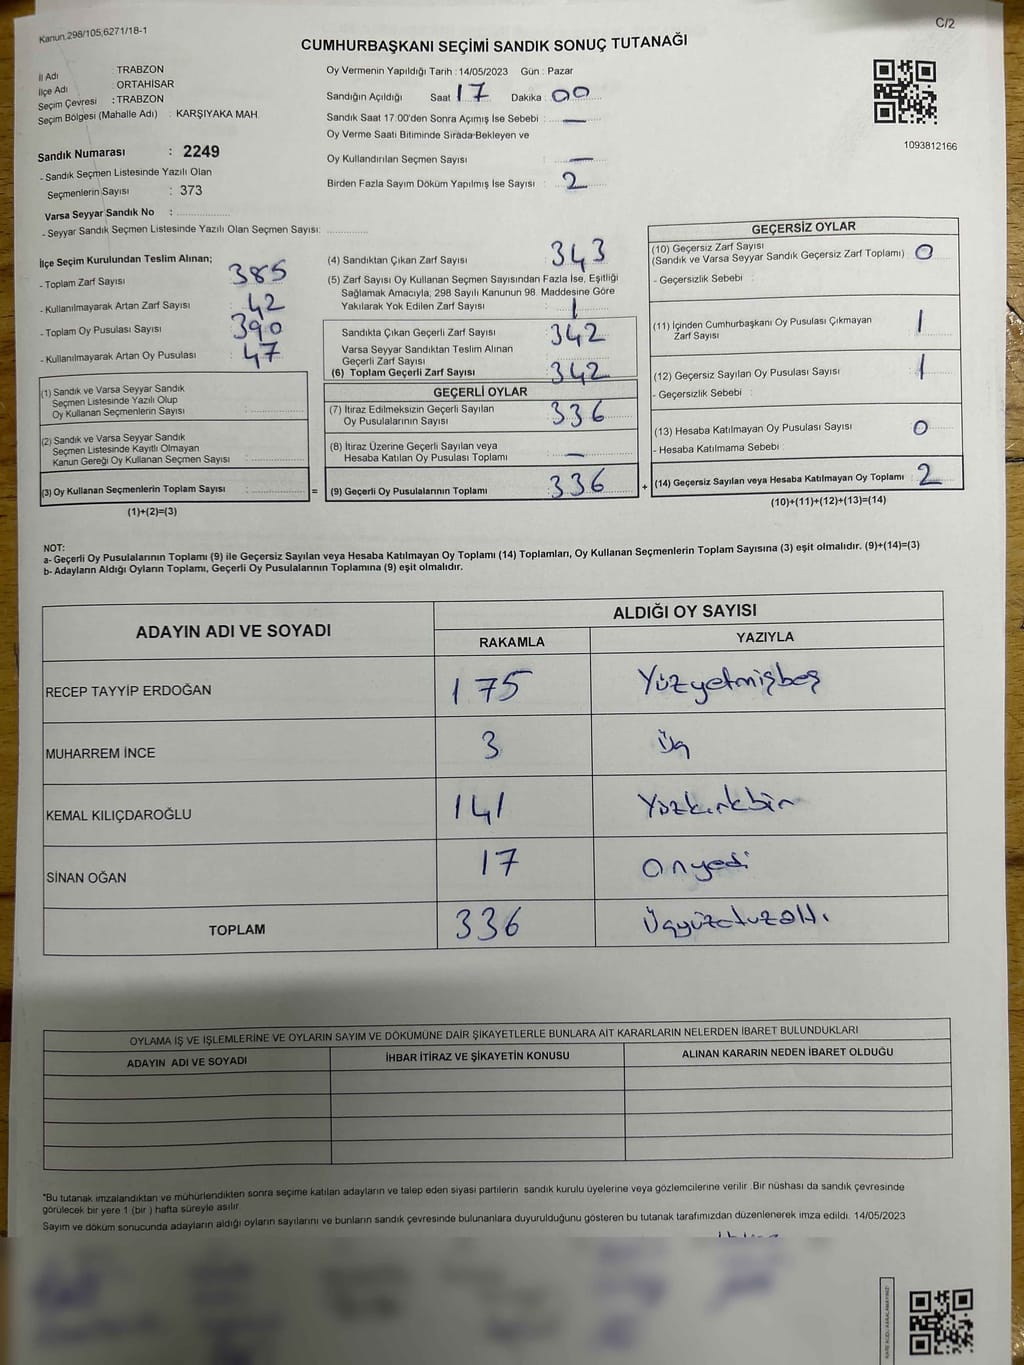 Kanun.298/105,6271/18-1
C/2
CUMHURBAŞKANI SEÇİMİ SANDIK SONUÇ TUTANAĞI
İl Adı : TRABZON
İlçe Adı : ORTAHİSAR
Seçim Çevresi : TRABZON
Seçim Bölgesi (Mahalle Adı) : KARŞIYAKA MAH.
Oy Vermenin Yapıldığı Tarih : 14/05/2023 Gün : Pazar
Sandığın Açıldığı Saat 17 Dakika : 00
Sandık Saat 17.00'den Sonra Açımış İse Sebebi : —
Oy Verme Saati Bitiminde Sırada Bekleyen ve
Oy Kullandırılan Seçmen Sayısı : —
Birden Fazla Sayım Döküm Yapılmış İse Sayısı : 2
1093812166
Sandık Numarası : 2249
- Sandık Seçmen Listesinde Yazılı Olan
Seçmenlerin Sayısı : 373
Varsa Seyyar Sandık No :
- Seyyar Sandık Seçmen Listesinde Yazılı Olan Seçmen Sayısı:
İlçe Seçim Kurulundan Teslim Alınan;
- Toplam Zarf Sayısı : 385
- Kullanılmayarak Artan Zarf Sayısı : 42
- Toplam Oy Pusulası Sayısı : 390
- Kullanılmayarak Artan Oy Pusulası : 47
(1) Sandık ve Varsa Seyyar Sandık
Seçmen Listesinde Yazılı Olup
Oy Kullanan Seçmenlerin Sayısı :
(2) Sandık ve Varsa Seyyar Sandık
Seçmen Listesinde Kayıtlı Olmayan
Kanun Gereği Oy Kullanan Seçmen Sayısı :
(3) Oy Kullanan Seçmenlerin Toplam Sayısı :
(1)+(2)=(3)
=
(4) Sandıktan Çıkan Zarf Sayısı : 343
(5) Zarf Sayısı Oy Kullanan Seçmen Sayısından Fazla İse, Eşitliği
Sağlamak Amacıyla; 298 Sayılı Kanunun 98. Maddesine Göre
Yakılarak Yok Edilen Zarf Sayısı : 1
Sandıkta Çıkan Geçerli Zarf Sayısı : 342
Varsa Seyyar Sandıktan Teslim Alınan
Geçerli Zarf Sayısı :
(6) Toplam Geçerli Zarf Sayısı : 342
GEÇERLİ OYLAR
(7) İtiraz Edilmeksizin Geçerli Sayılan
Oy Pusulalarının Sayısı : 336
(8) İtiraz Üzerine Geçerli Sayılan veya
Hesaba Katılan Oy Pusulası Toplamı : —
(9) Geçerli Oy Pusulalarının Toplamı : 336
+
GEÇERSİZ OYLAR
(10) Geçersiz Zarf Sayısı
(Sandık ve Varsa Seyyar Sandık Geçersiz Zarf Toplamı) : 0
- Geçersizlik Sebebi :
(11) İçinden Cumhurbaşkanı Oy Pusulası Çıkmayan : 1
Zarf Sayısı
(12) Geçersiz Sayılan Oy Pusulası Sayısı : 1
- Geçersizlik Sebebi :
(13) Hesaba Katılmayan Oy Pusulası Sayısı : 0
- Hesaba Katılmama Sebebi :
(14) Geçersiz Sayılan veya Hesaba Katılmayan Oy Toplamı : 2
(10)+(11)+(12)+(13)=(14)
NOT:
a- Geçerli Oy Pusulalarının Toplamı (9) ile Geçersiz Sayılan veya Hesaba Katılmayan Oy Toplamı (14) Toplamları, Oy Kullanan Seçmenlerin Toplam Sayısına (3) eşit olmalıdır. (9)+(14)=(3)
b- Adayların Aldığı Oyların Toplamı, Geçerli Oy Pusulalarının Toplamına (9) eşit olmalıdır.
ADAYIN ADI VE SOYADI
ALDIĞI OY SAYISI
RAKAMLA YAZIYLA
RECEP TAYYİP ERDOĞAN 175 Yüzyetmişbeş
MUHARREM İNCE 3 Üç
KEMAL KILIÇDAROĞLU 141 Yüzkırkbir
SİNAN OĞAN 17 onyedi
TOPLAM 336 Üçyüzotuzaltı
OYLAMA İŞ VE İŞLEMLERİNE VE OYLARIN SAYIM VE DÖKÜMÜNE DAİR ŞİKAYETLERLE BUNLARA AİT KARARLARIN NELERDEN İBARET BULUNDUKLARI
ADAYIN ADI VE SOYADI İHBAR İTİRAZ VE ŞİKAYETİN KONUSU ALINAN KARARIN NEDEN İBARET OLDUĞU
*Bu tutanak imzalandıktan ve mühürlendikten sonra seçime katılan adayların ve talep eden siyasi partilerin sandık kurulu üyelerine veya gözlemcilerine verilir .Bir nüshası da sandık çevresinde
görülecek bir yere 1 (bir ) hafta süreyle asılır.
Sayım ve döküm sonucunda adayların aldığı oyların sayılarını ve bunların sandık çevresinde bulunanlara duyurulduğunu gösteren bu tutanak tarafımızdan düzenlenerek imza edildi. 14/05/2023